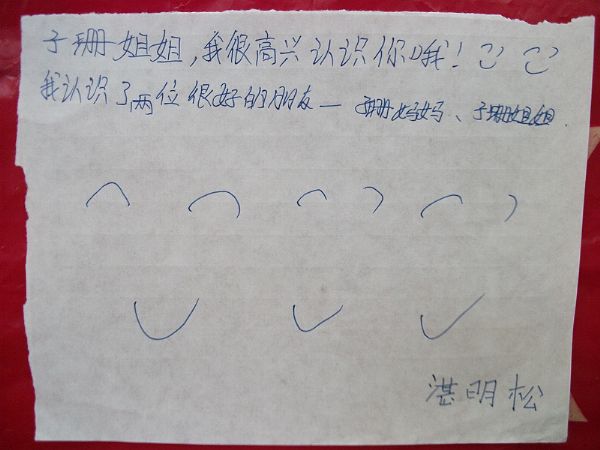 子珊姐姐，我很高兴认识你哦！
我认识了两位很好的朋友—珊妈妈、子珊姐姐
湛明松